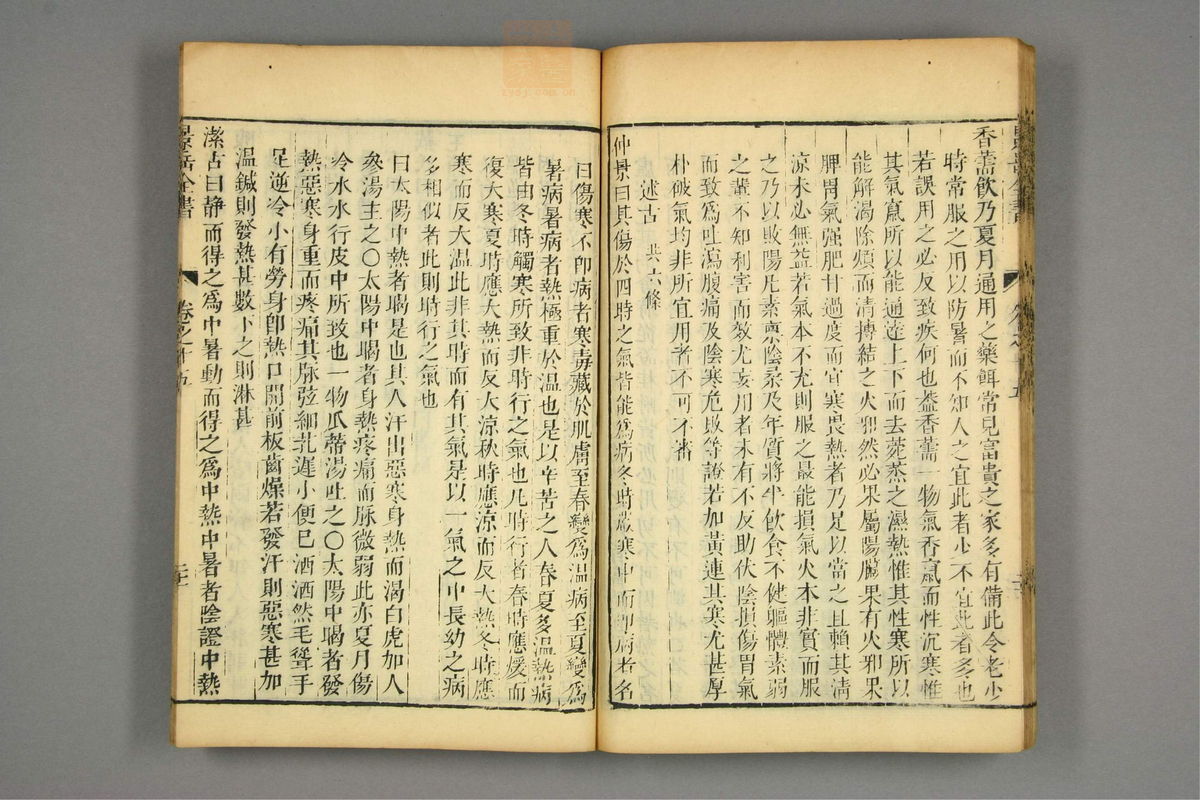 香薷飲乃夏月通用之藥餌常見富貴之家多有備此令老少
時常服之用以防暑而不知人之宜此者少不宜此者多也
若誤用之必反致疾何也蓋香薷一物氣香竄而性沉寒惟
其氣竄所以能通達上下而去菀蒸之濕熱惟其性寒所以
能解渴除煩而清搏結之火邪然必果屬陽臟果有火邪果
脾胃氣强肥甘過度而宜寒畏熱者乃足以當之且賴其清
涼未必無益若氣本不充則服之最能損氣火本非實而服
之乃以敗陽凡素禀陰柔及年質將半飲食不健軀體素弱
之輩不知利害而效尤妄用者未有不反助伏陰損傷胃氣
而致爲吐瀉腹痛及陰寒危敗等證若加黃連其寒尤甚厚
朴破氣均非所宜用者不可不審
述古 共六條
仲景曰其傷於四時之氣皆能爲病冬時嚴寒中而即病者名
曰傷寒不即病者寒毒藏於肌膚至春變爲温病至夏變爲
暑病暑病者熱極重於温也是以辛苦之人春夏多温熱病
皆由冬時觸寒所致非時行之氣也凡時行者春時應煖而
復大寒夏時應大熱而反大涼秋時應涼而反大熱冬時應
寒而反大温此非其時而有其氣是以一氣之中長幼之病
多相似者此則時行之氣也
曰太陽中熱者暍是也其人汗出惡寒身熱而渴白虎加人
參湯主之〇太陽中暍者身熱疼痛而脉微弱此亦夏月傷
冷水水行皮中所致也一物瓜蒂湯吐之〇太陽中暍者發
熱惡寒身重而疼痛其脉弦細芤遲小便已洒洒然毛聳手
足逆冷小有勞身即熱口開前板齒燥若發汗則惡寒甚加
温鍼則發熱甚數下之則淋甚
潔古曰静而得之爲中暑動而得之爲中熱中暑者陰證中熱
景岳全書
卷之十五
zyoj.com.cn